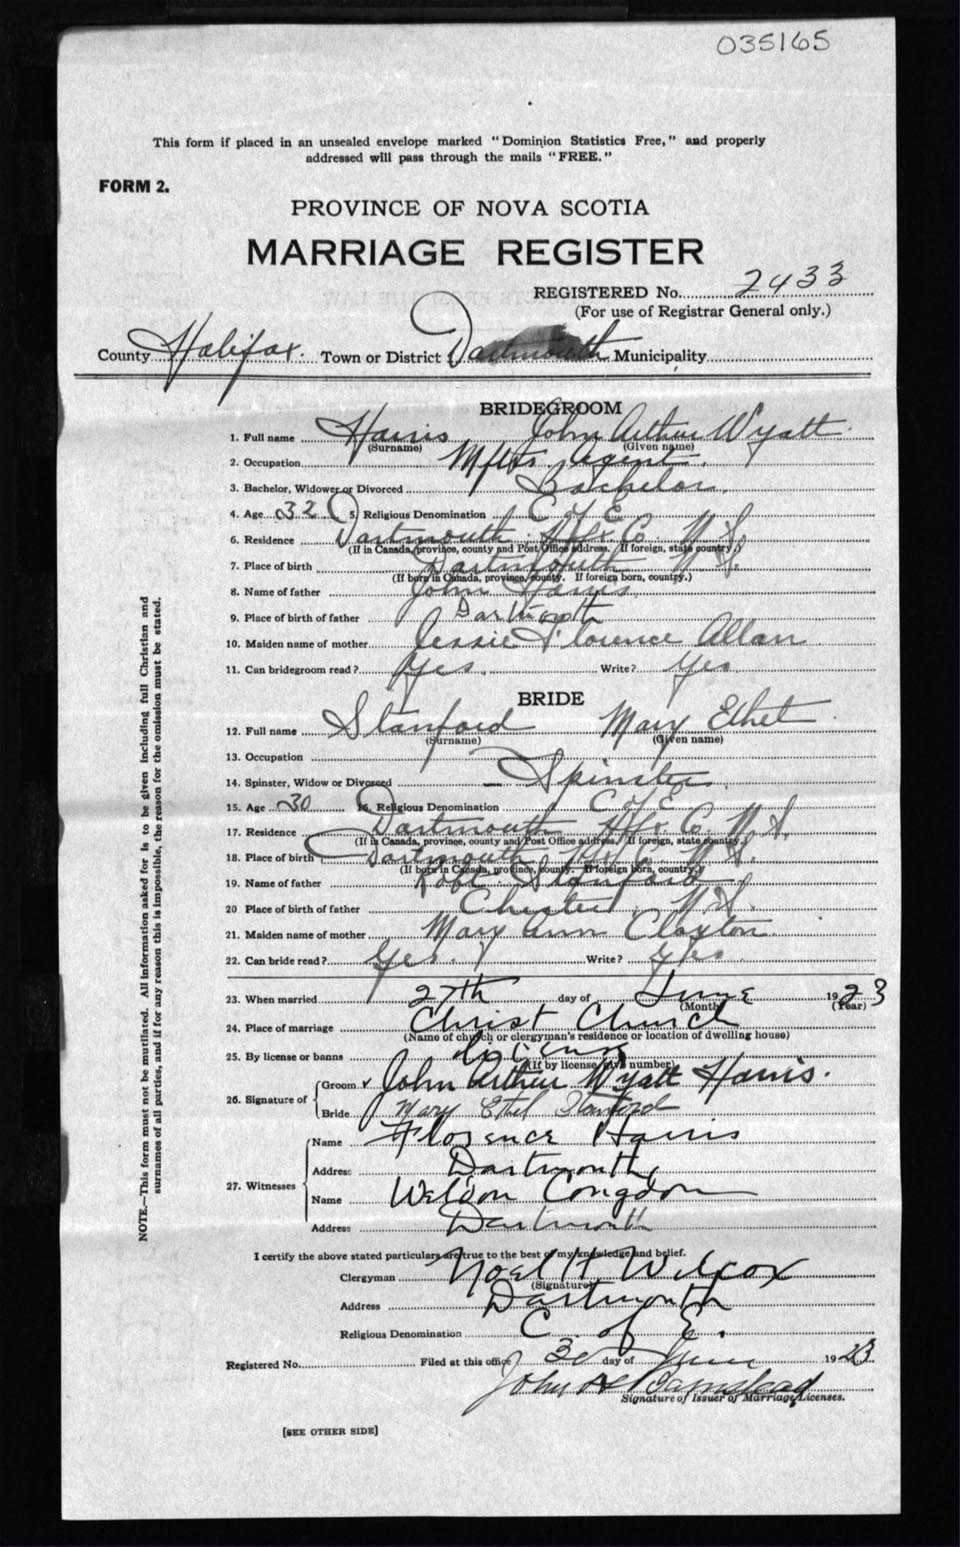 035165
This form if placed in an unsealed envelope marked "Dominion Statistics Free," and properly
addressed will pass through the mails "FREE."
FORM 2.
PROVINCE OF NOVA SCOTIA
MARRIAGE REGISTER
REGISTERED No. 2433
(For use of Registrar General only.)
County Halifax. Town or District Dartmouth Municipality
BRIDEGROOM
1. Full name Harris John Arthur Wyatt
(Surname) (Given name)
2. Occupation Mftrs Agent.
3. Bachelor, Widower or Divorced Bachelor
4. Age 32 5. Religious Denomination C of E
6. Residence Dartmouth Hfx Co. N.S.
(If in Canada, province, county and Post Office address. If foreign, state country.)
7. Place of birth Dartmouth N.S.
(If born in Canada, province, county. If foreign born, country.)
8. Name of father John Harris
9. Place of birth of father Dartmouth
10. Maiden name of mother Jessie Florence Allan
11. Can bridegroom read? Yes. Write? Yes
BRIDE
12. Full name Stanford Mary Ethel
(Surname) (Given name)
13. Occupation
14. Spinster, Widow or Divorced Spinster
15. Age 30 16. Religious Denomination C of E
17. Residence Dartmouth Hfx Co. N.S.
(If in Canada, province, county and Post Office address. If foreign, state country.)
18. Place of birth Dartmouth Hfx Co. N.S.
(If born in Canada, province, county. If foreign born, country.)
19. Name of father Robt. Stanford
20 Place of birth of father Chester N.S.
21. Maiden name of mother Mary Ann Claxton
22. Can bride read? Yes. Write? Yes
23. When married 27th day of June 1923
(Month) (Year)
24. Place of marriage Christ Church
(Name of church or clergyman's residence or location of dwelling house)
25. By license or banns license
(If by license give number)
26. Signature of Groom John Arthur Wyatt Harris.
Bride Mary Ethel Stanford
27. Witnesses Name Florence Harris
Address Dartmouth
Name Weldon Congdon
Address Dartmouth
I certify the above stated particulars are true to the best of my knowledge and belief.
Clergyman Noel H Wilcox
(Signature)
Address Dartmouth
Religious Denomination C. of E.
Registered No. Filed at this office 30 day of June 1923
John
Signature of Issuer of Marriage Licenses.
[SEE OTHER SIDE]
NOTE.—This form must not be mutilated. All information asked for is to be given including full Christian and
surnames of all parties, and if for any reason this is impossible, the reason for the omission must be stated.